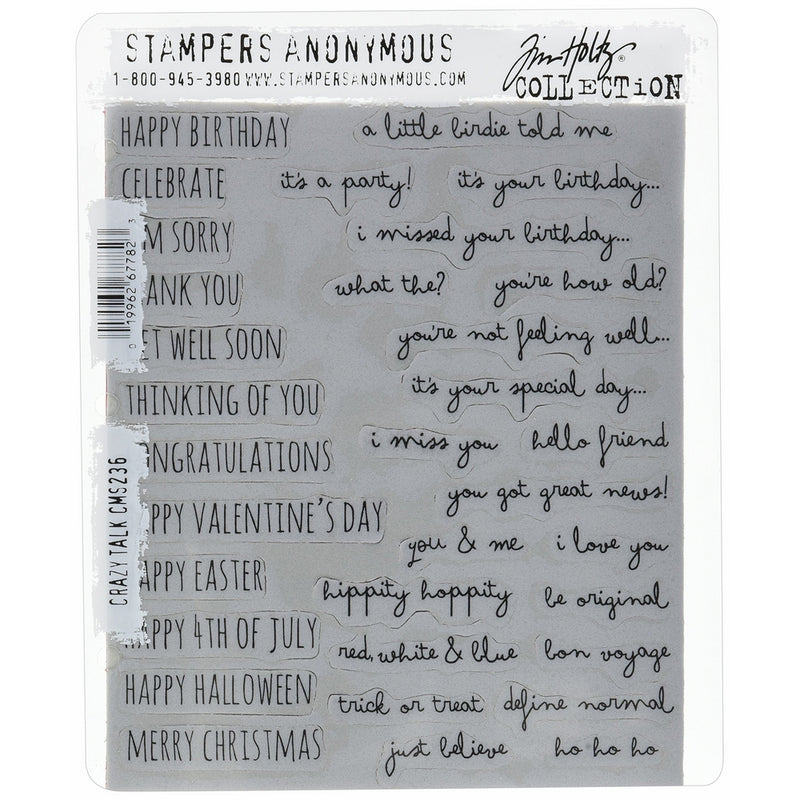 STAMPERS ANONYMOUS
1-800-945-3980 WWW.STAMPERSANONYMOUS.COM
Tim Holtz®
COLLECTiON
HAPPY BIRTHDAY a little birdie told me
CELEBRATE it's a party! it's your birthday...
'M SORRY i missed your birthday...
ANK YOU what the? you're how old?
ET WELL SOON you're not feeling well...
THINKING OF YOU it's your special day...
ONGRATULATIONS i miss you hello friend
you got great news!
PPY VALENTINE'S DAY
you & me i love you
APPY EASTER hippity hoppity be original
APPY 4TH OF JULY red, white & blue bon voyage
HAPPY HALLOWEEN trick or treat define normal
MERRY CHRISTMAS just believe ho ho ho
0 19962 67782 3
CRAZY TALK CMS236